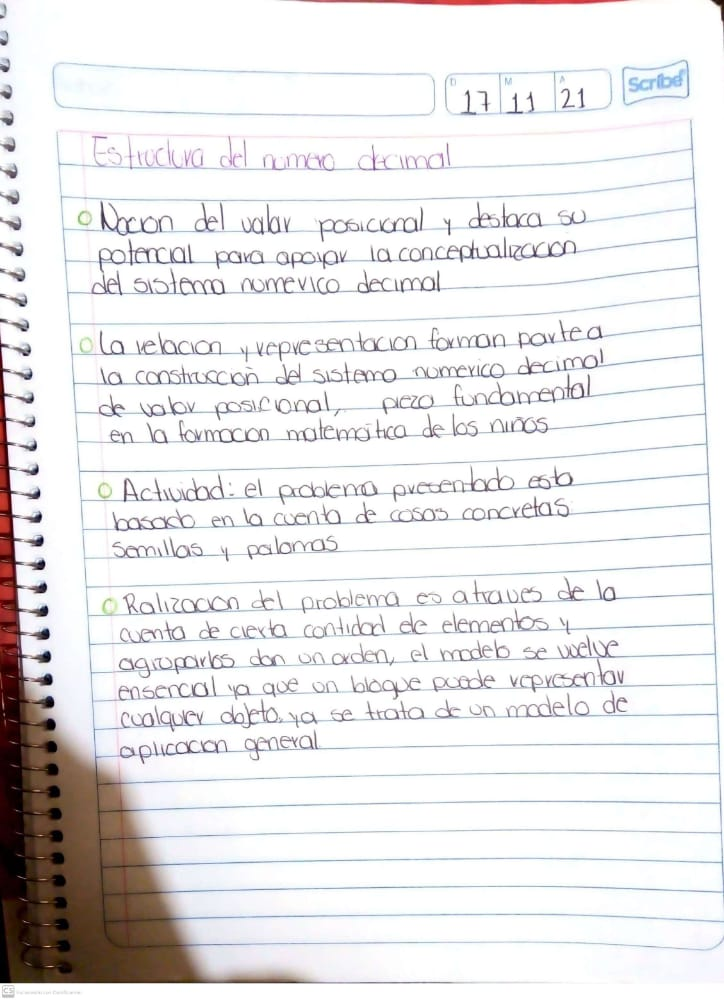 D M A
17 11 21
Scribe
Estructura del numero decimal
Nocion del valor posicional y destaca su
potencial para apoyar la conceptualizacion
del sistema numerico decimal
La relacion y representacion forman parte a
la construccion del sistema numerico decimal
de valor posicional, pieza fundamental
en la formacion matematica de los niños
Actividad: el problema presentado esta
basado en la cuenta de cosas concretas
semillas y palomas
Ralizacion del problema es atraves de la
cuenta de cierta contidad de elementos y
agruparlos dan un orden, el modelo se vuelve
ensencial ya que un bloque puede representar
cualquier objeto, ya se trata de un modelo de
aplicacion general
CS Escaneado con CamScanner